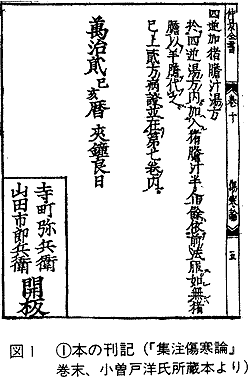 四逆加猪膽汁湯方
於四逆湯方內加入猪膽汁半合餘依前法服如無猪
膽以羊膽代之
已上貳方病證並在第七卷內
萬治貳己亥曆 夾鐘良日
寺町弥兵衛
山田市郎兵衛
開板
仲景全書
卷十
傷寒論
五
図1 ①本の刊記(『集注傷寒論』
巻末、小曽戸洋氏所蔵本より)